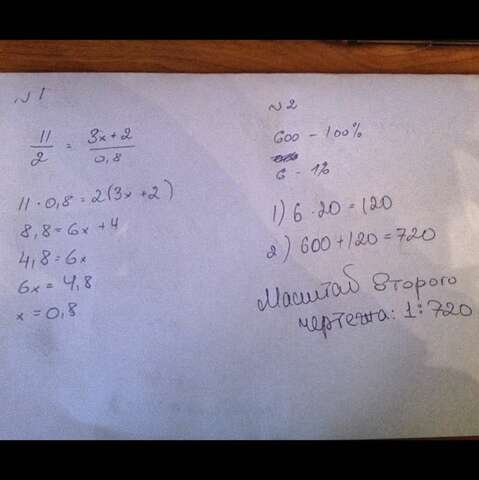 №1
11/2 = 3x+2/0,8
11·0,8=2(3x+2)
8,8=6x+4
4,8=6x
6x=4,8
x=0,8
№2
600 – 100%
6 – 1%
1) 6·20=120
2) 600+120=720
Масштаб второго
чертежа: 1:720